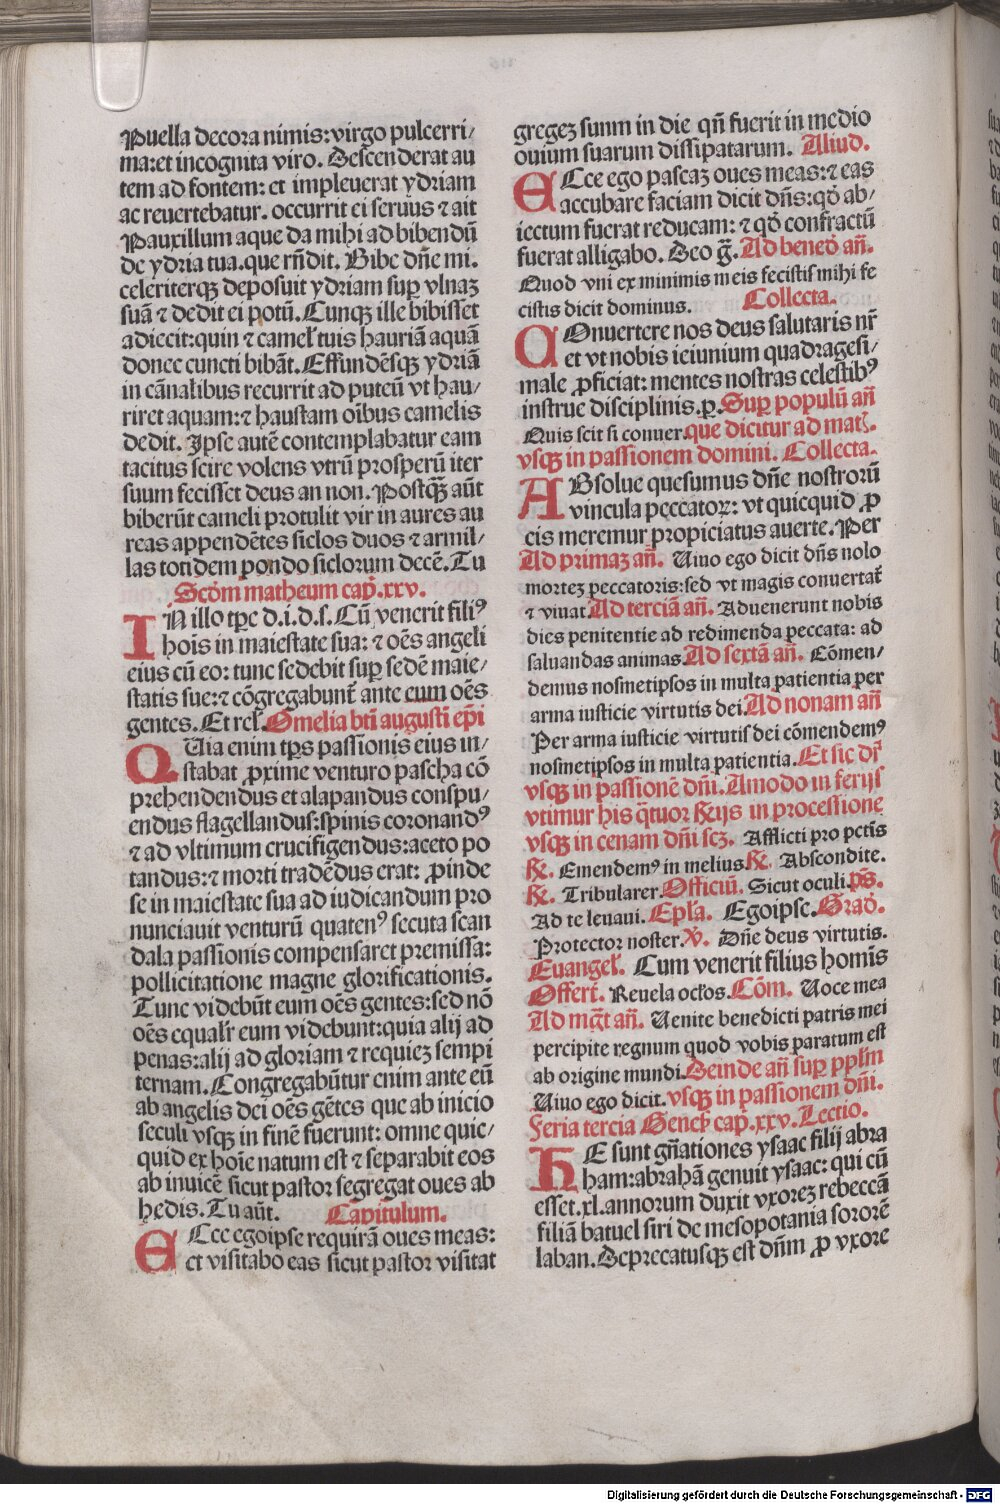 Puella decora nimis: virgo pulcerri/
ma: et incognita viro. Descenderat au
tem ad fontem: et impleuerat ydriam
ac reuertebatur. occurrit ei seruus ⁊ ait
Pauxillum aque da mihi ad bibendū
de ydria tua. que rñdit. Bibe dñe mi.
celeriterqꝫ deposuit ydriam suꝑ vlnaꝫ
suā ⁊ dedit ei potū. Cunqꝫ ille bibisset
adiecit: quin ⁊ camel' tuis hauriā aquā
donec cuncti bibāt. Effundēsqꝫ ydriā
in cānalibus recurrit ad puteū vt hau/
riret aquam: ⁊ haustam oībus camelis
dedit. Ipse autē contemplabatur eam
tacitus scire volens vtrū prosperū iter
suum fecisset deus an non. Postꝙ̄ aūt
biberūt cameli protulit vir in aures au
reas appendētes siclos duos ⁊ armil/
las totidem pondo siclorum decē. Tu
Scdm̄ matheum cap̄. xxv.
IN illo tꝑe d. i. d. s. Cū venerit filiꝰ
hoīs in maiestate sua: ⁊ oēs angeli
eius cū eo: tunc sedebit suꝑ sedē maie/
statis sue: ⁊ cōgregabunt̄ ante eum oēs
gentes. Et rel'. Omelia bti augusti ep̄i
QUia enim tꝑs passionis eius in/
stabat ꝓxime venturo pascha cō
prehendendus et alapandus conspu/
endus flagellandus: spinis coronandꝰ
⁊ ad vltimum crucifigendus: aceto po
tandus: ⁊ morti tradēdus erat: ꝓinde
se in maiestate sua ad iudicandum pro
nunciauit venturū quatenꝰ secuta scan
dala passionis compensaret premissa:
pollicitatione magne glorificationis.
Tunc videbūt eum oēs gentes: sed nō
oēs equalr̄ eum videbunt: quia alij ad
penas: alij ad gloriam ⁊ requieꝫ sempi
ternam. Congregabūtur enim ante eū
ab angelis dei oēs gētes que ab inicio
seculi vsqꝫ in finē fuerunt: omne quic/
quid ex hoīe natum est ⁊ separabit eos
ab inuicē sicut pastor segregat oues ab
hedis. Tu aūt. Capitulum.
ECce egoipse requirā oues meas:
et visitabo eas sicut pastor visitat
gregeꝫ suum in die qn̄ fuerit in medio
ouium suarum dissipatarum. Aliud.
ECce ego pascaꝫ oues meas: ⁊ eas
accubare faciam dicit dn̄s: qd̄ ab/
iectum fuerat reducam: ⁊ qd̄ confractū
fuerat alligabo. Deo gr̄. Ad bened̄ an̄.
Quod vni ex minimis meis fecistis mihi fe
cistis dicit dominus. Collecta.
COnuertere nos deus salutaris nr̄
et vt nobis ieiunium quadragesi/
male ꝓficiat: mentes nostras celestibꝰ
instrue disciplinis. p. Suꝑ populū an̄
Quis scit si conuer. que dicitur ad mat̄.
vsqꝫ in passionem domini. Collecta.
ABsolue quesumus dn̄e nostrorū
vincula peccatoꝝ: vt quicquid ꝓ
eis meremur propiciatus auerte. Per
Ad primaꝫ an̄. Uiuo ego dicit dn̄s nolo
morteꝫ peccatoris: sed vt magis conuertat̄
⁊ viuat Ad terciā an̄. Aduenerunt nobis
dies penitentie ad redimenda peccata: ad
saluandas animas. Ad sextā an̄. Cōmen/
demus nosmetipsos in multa patientia per
arma iusticie virtutis dei. Ad nonam an̄
Per arma iusticie virtutis dei cōmendemꝰ
nosmetipsos in multa patientia. Et sic dr̄
vsqꝫ in passionē dn̄i. Amodo in ferijs
vtimur his q̄tuor ℞ijs in processione
vsqꝫ in cenam dn̄i scꝫ. Afflicti pro pctīs
℞. Emendemꝰ in melius ℞. Abscondite.
℞. Tribularer. Officiū. Sicut oculi. ps̄.
Ad te leuaui. Epl'a. Egoipse. Grad̄.
Protector noster. ℣. Dn̄e deus virtutis.
Euangel'. Cum venerit filius homīs
Offert̄. Reuela ocl'os. Cōm. Uoce mea
Ad mgt̄ an̄. Uenite benedicti patris mei
percipite regnum quod vobis paratum est
ab origine mundi. Deinde an̄ suꝑ ppl'm
Uiuo ego dicit. vsqꝫ in passionem dn̄i.
Feria tercia Genes̄ cap̄. xxv. Lectio.
HE sunt gn̄ationes ysaac filij abra
ham: abrahā genuit ysaac: qui cū
esset. xl. annorum duxit vxoreꝫ rebeccā
filiā batuel siri de mesopotania sororē
laban. Deprecatusqꝫ est dn̄m ꝓ vxore
Digitalisierung gefördert durch die Deutsche Forschungsgemeinschaft - DFG